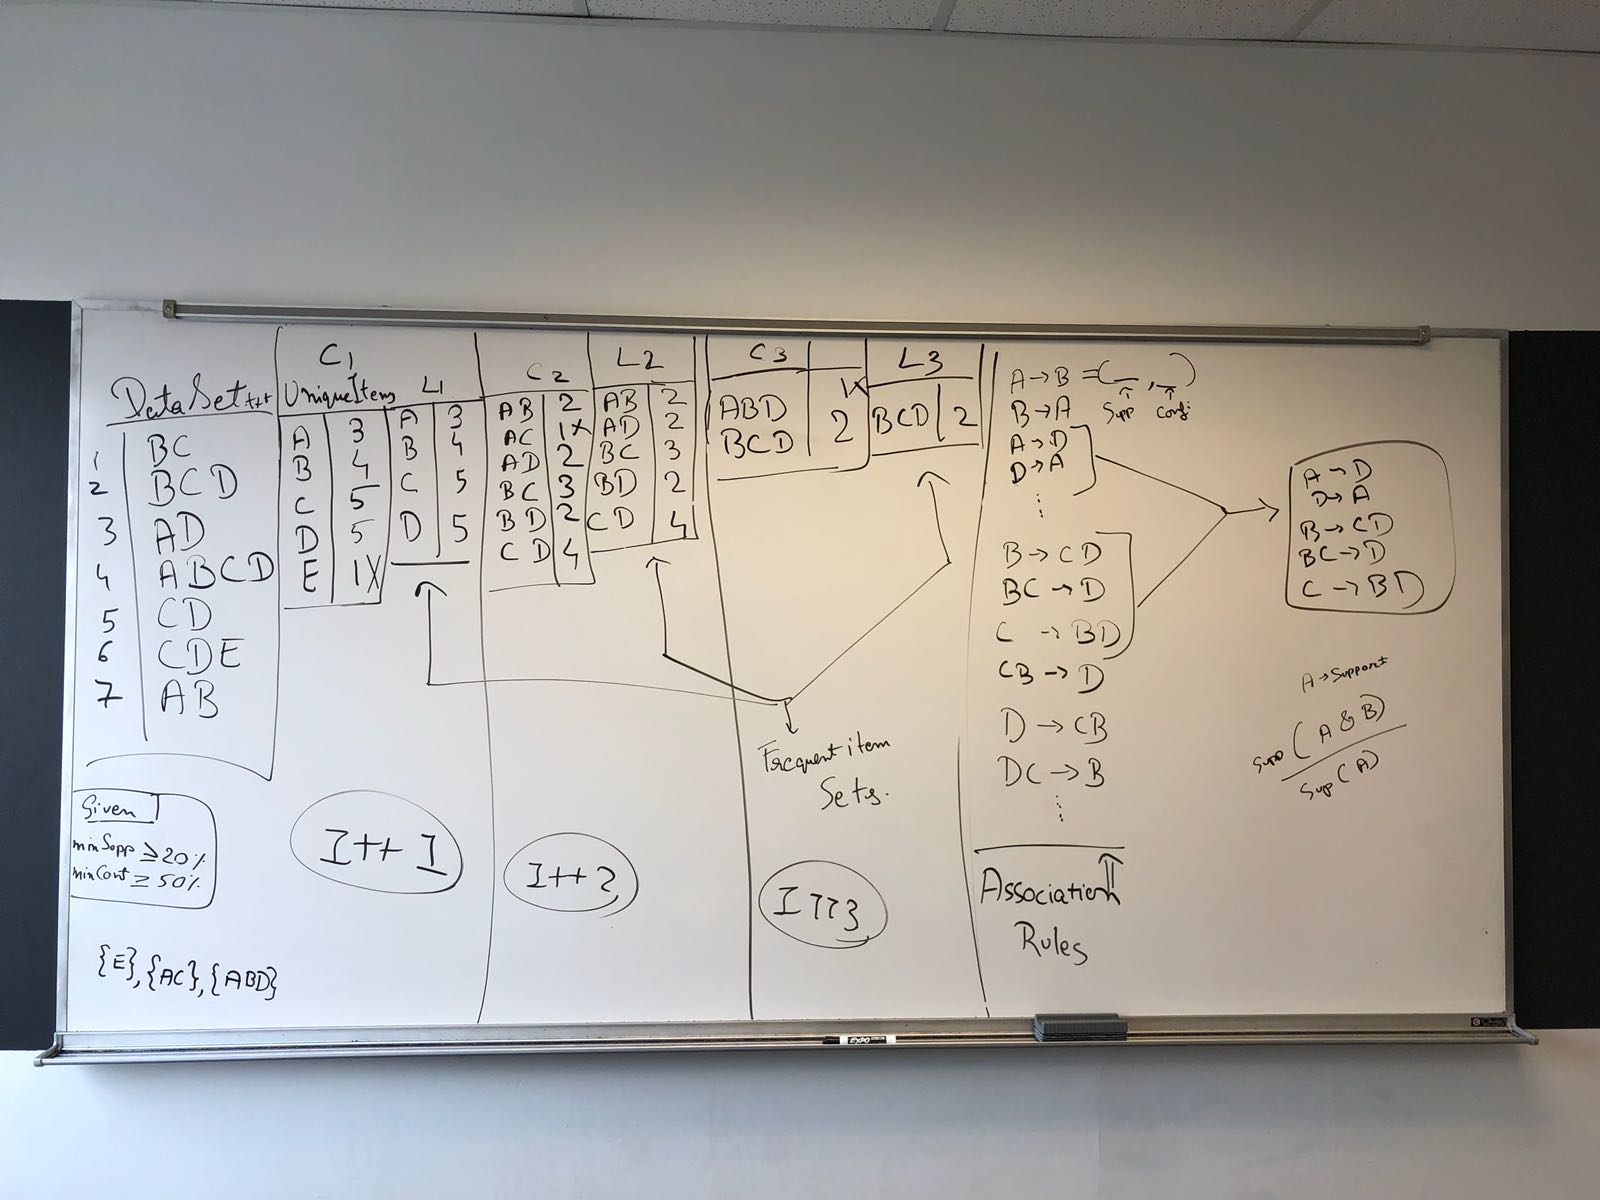 DataSet
1 BC
2 BCD
3 AD
4 ABCD
5 CD
6 CDE
7 AB
Given
minSupp ≥ 20%
minConf ≥ 50%
{E}, {AC}, {ABD}
C1
Unique Items
A 3
B 4
C 5
D 5
E 1X
L1
A 3
B 4
C 5
D 5
I++ 1
C2
AB 2
AC 1X
AD 2
BC 3
BD 2
CD 4
L2
AB 2
AD 2
BC 3
BD 2
CD 4
I++ 2
C3
ABD 1X
BCD 2
L3
BCD 2
Frequent item
Sets.
A → B = ( _ , _ )
Supp Confi
B → A
A → D
D → A
B → CD
BC → D
C → BD
CB → D
D → CB
DC → B
Association
Rules
A → D
D → A
B → CD
BC → D
C → BD
A → Support
Supp (A & B)
Sup (A)
EXPO